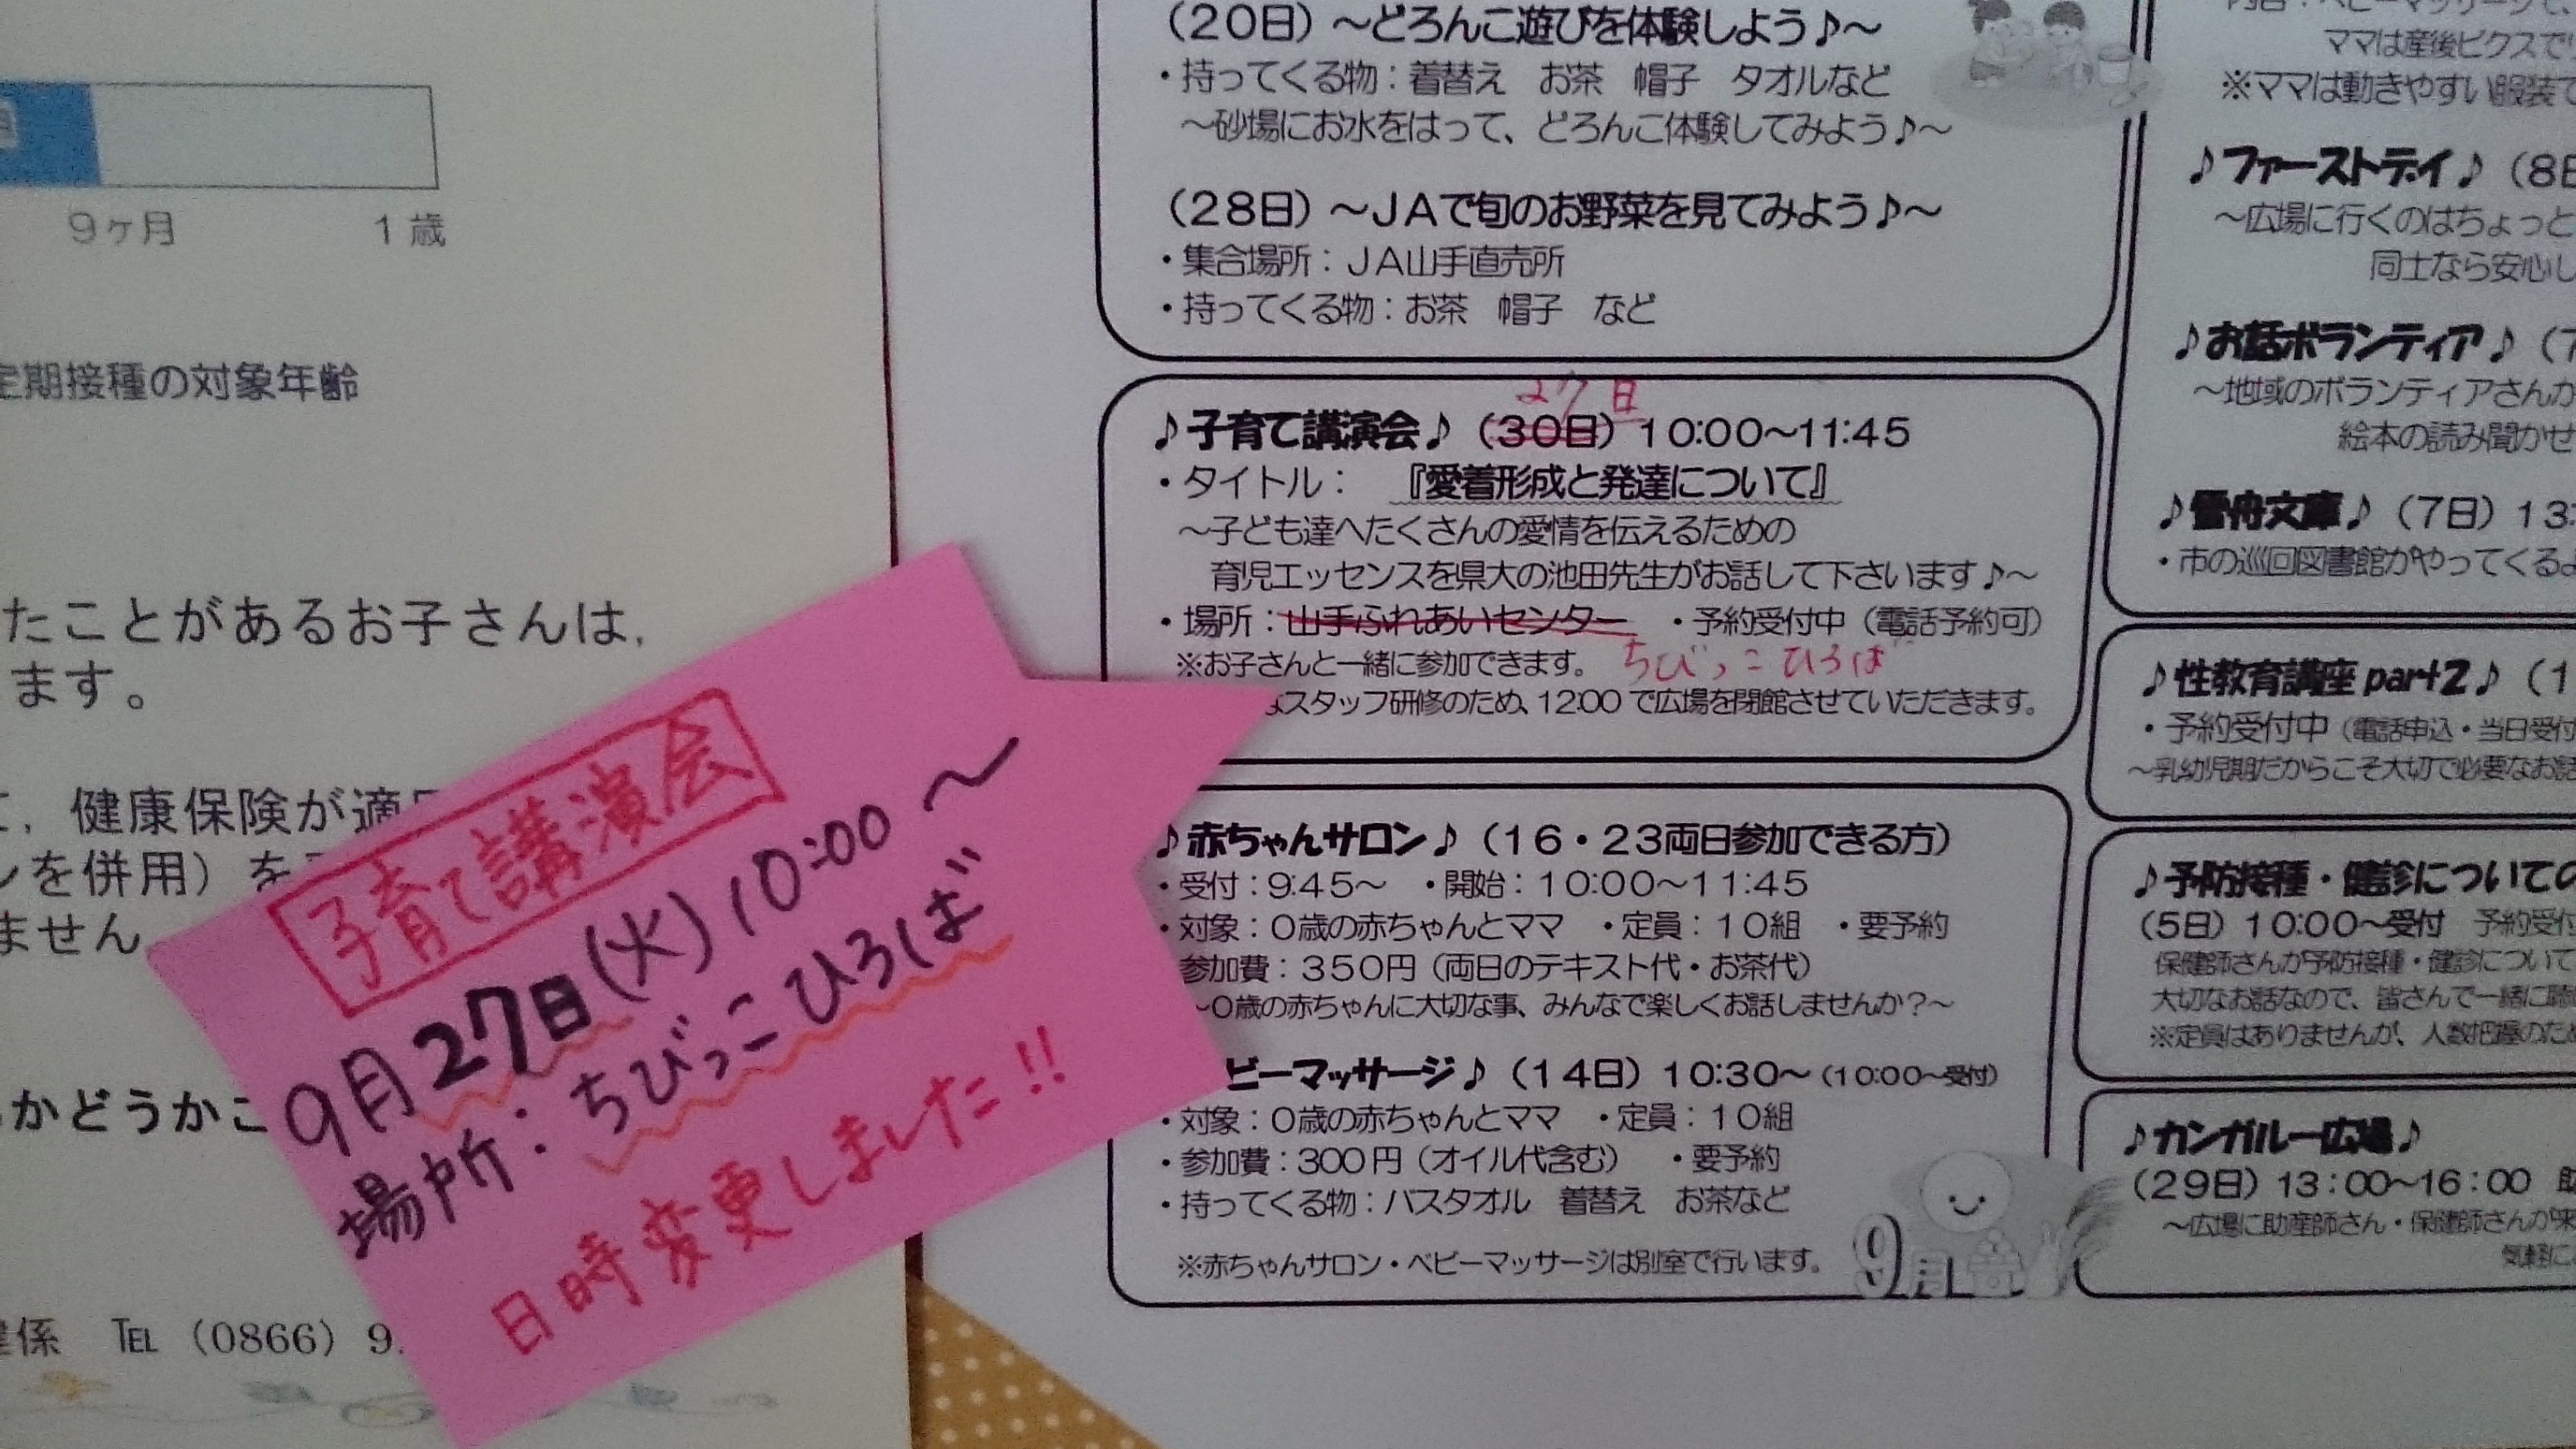 9ヶ月 1歳
定期接種の対象年齢
たことがあるお子さんは,
ます。
健康保険が適
を併用）を
ません
かどうかこ
係 TEL（0866）9
子育て講演会
9月27日(火)10:00～
場所：ちびっこひろば
日時変更しました!!
（20日）～どろんこ遊びを体験しよう♪～
・持ってくる物：着替え お茶 帽子 タオルなど
～砂場にお水をはって、どろんこ体験してみよう♪～
（28日）～JAで旬のお野菜を見てみよう♪～
・集合場所：JA山手直売所
・持ってくる物：お茶 帽子 など
27日
♪子育て講演会♪（30日）10:00～11:45
・タイトル： 『愛着形成と発達について』
～子ども達へたくさんの愛情を伝えるための
育児エッセンスを県大の池田先生がお話して下さいます♪～
・場所：山手ふれあいセンター ・予約受付中（電話予約可）
※お子さんと一緒に参加できます。 ちびっこひろば
スタッフ研修のため、12:00で広場を閉館させていただきます。
♪赤ちゃんサロン♪（16・23両日参加できる方）
・受付：9:45～ ・開始：10:00～11:45
・対象：0歳の赤ちゃんとママ ・定員：10組 ・要予約
参加費：350円（両日のテキスト代・お茶代）
～0歳の赤ちゃんに大切な事、みんなで楽しくお話しませんか？～
ビーマッサージ♪（14日）10:30～（10:00～受付）
・対象：0歳の赤ちゃんとママ ・定員：10組
・参加費：300円（オイル代含む） ・要予約
・持ってくる物：バスタオル 着替え お茶など
※赤ちゃんサロン・ベビーマッサージは別室で行います。
9月
ママは産後ビクスで
※ママは動きやすい服装で
♪ファーストデイ♪（8日
～広場に行くのはちょっと
同士なら安心し
♪お話ボランティア♪（7
～地域のボランティアさんが
絵本の読み聞かせ
♪雪舟文庫♪（7日）13:
・市の巡回図書館がやってくるよ
♪性教育講座part2♪（1
・予約受付中（電話申込・当日受付
～乳幼児期だからこそ大切で必要なお話
♪予防接種・健診についての
（5日）10:00～受付 予約受付
保健師さんが予防接種・健診について
大切なお話なので、皆さんで一緒に聴
※定員はありませんが、人数把握のため
♪カンガルー広場♪
（29日）13：00～16：00 助
～広場に助産師さん・保健師さんが来
気軽に